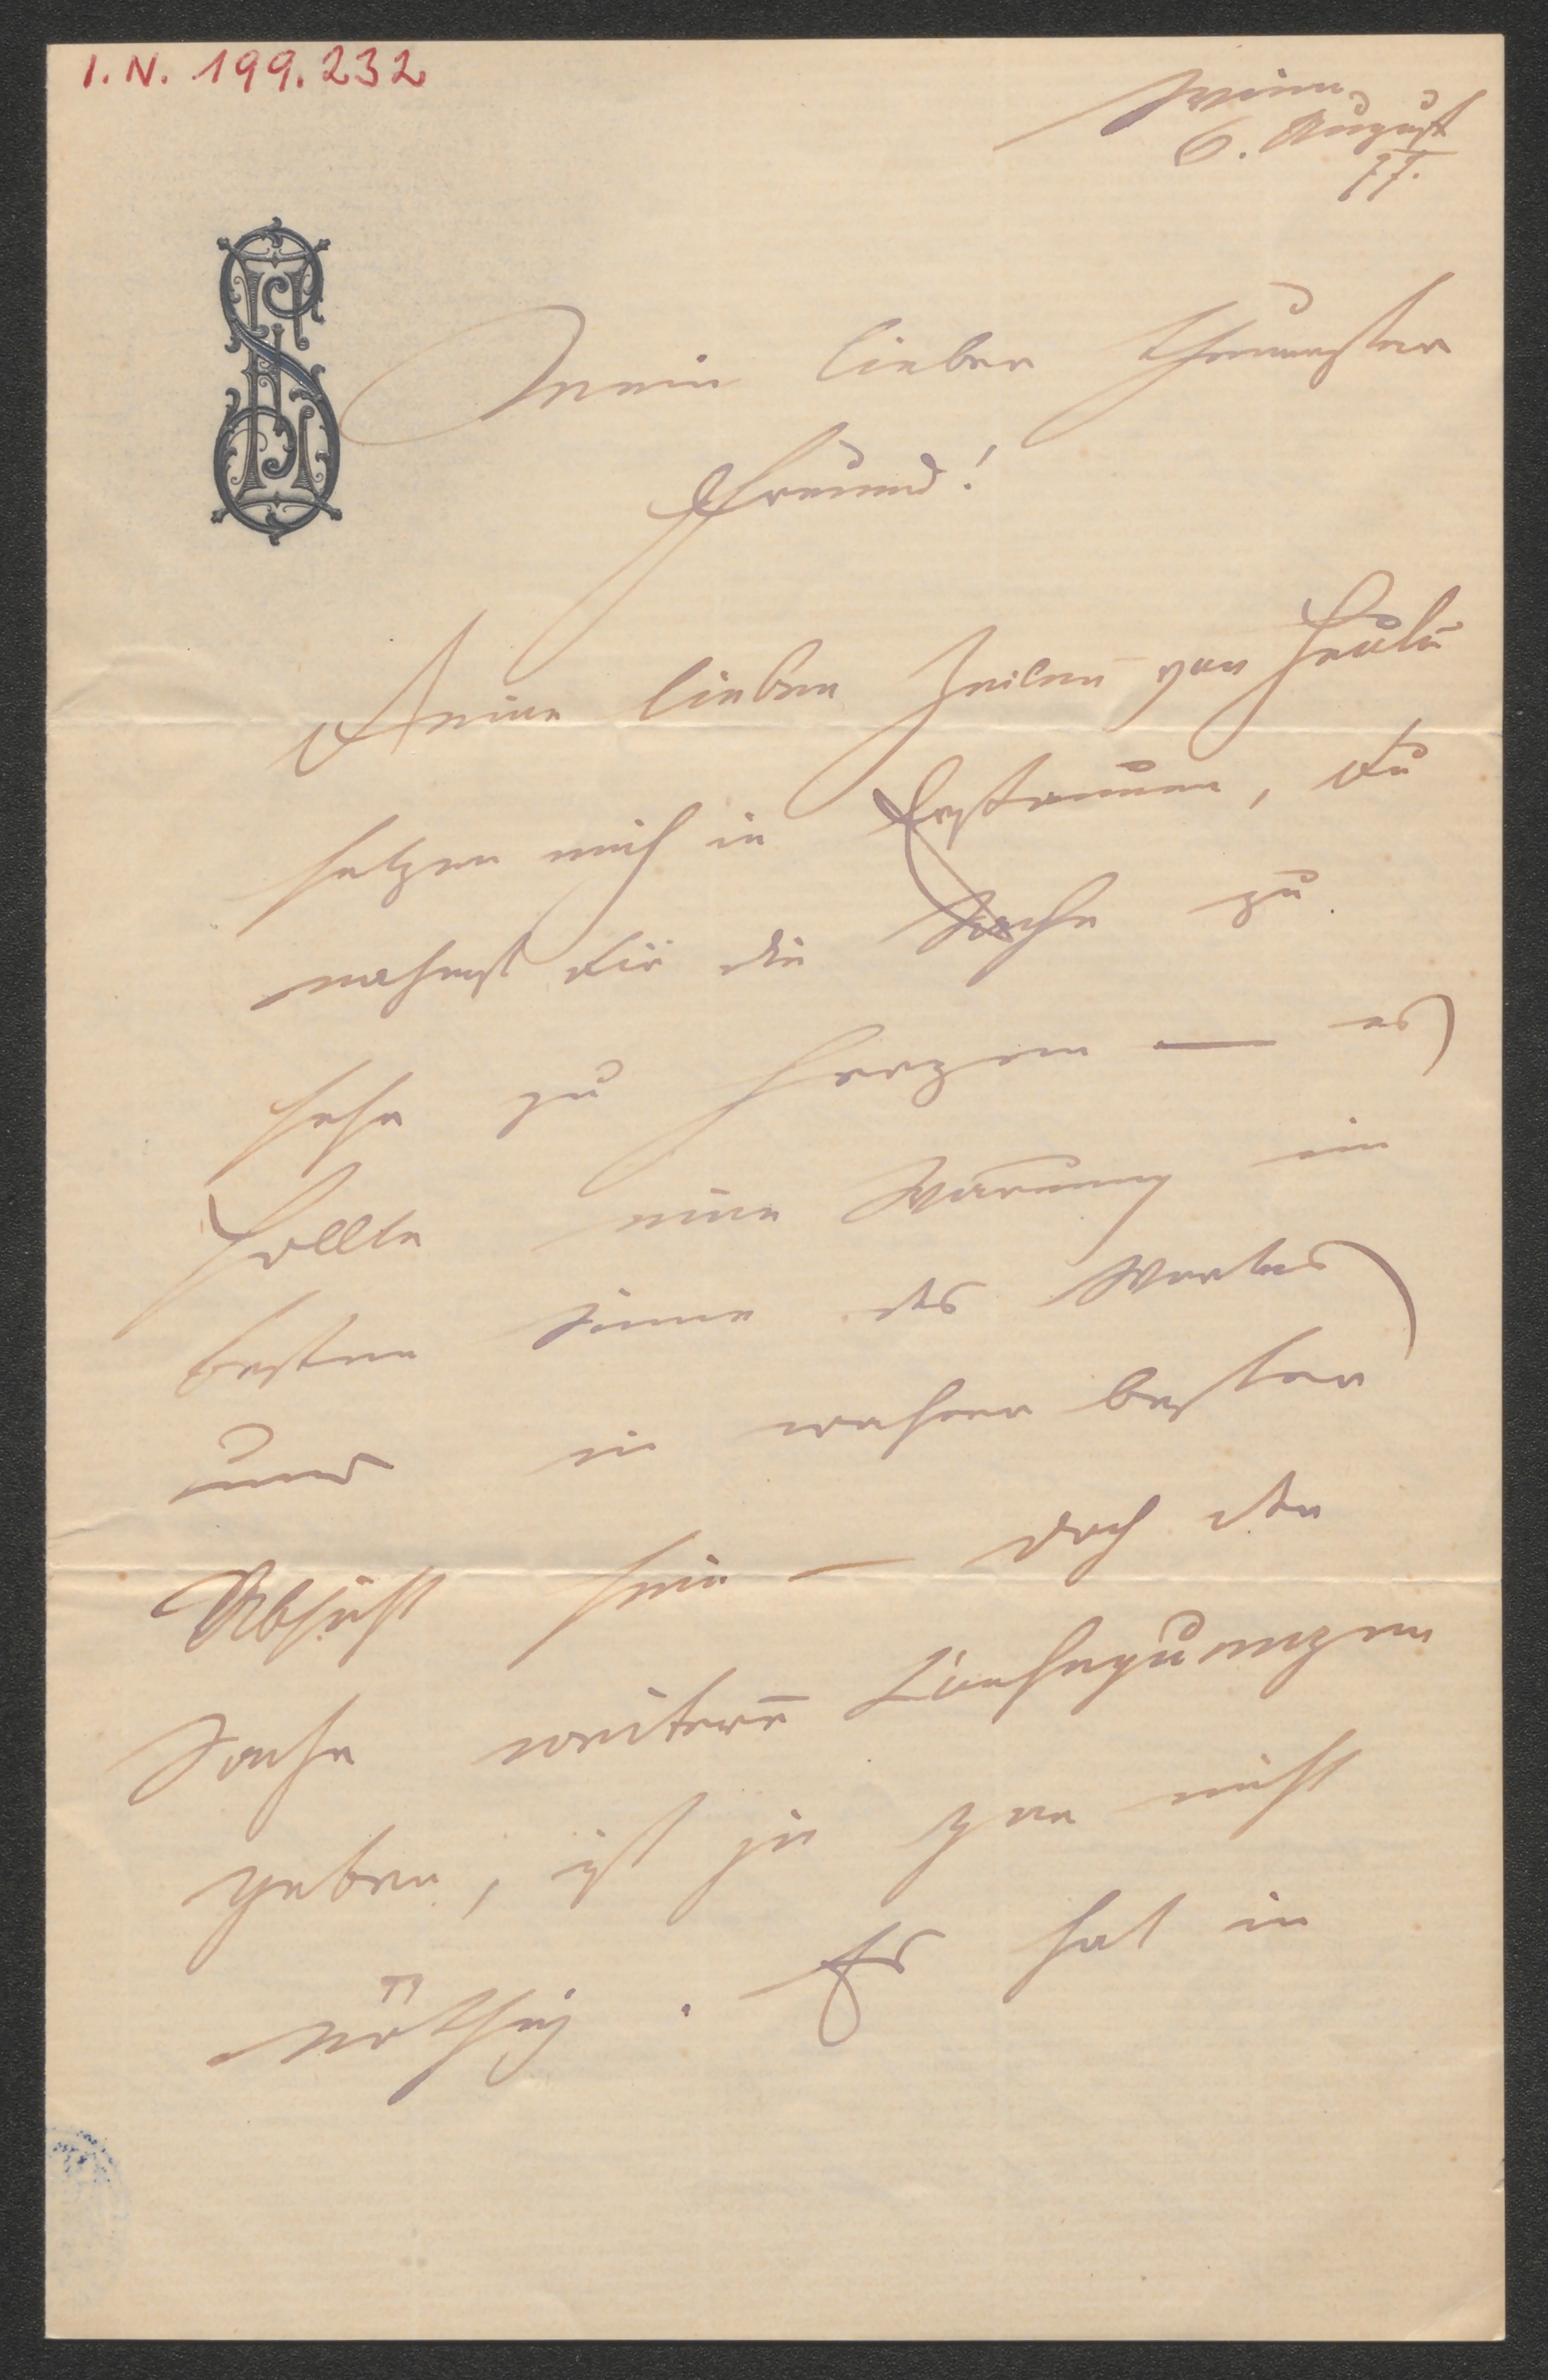 I.N. 199.232
Wien,
6. August
77.
Mein lieber theuerster
Freund!
Deine lieben Zeilen von heute
setzen mich in Erstaunen, Du
nahmst Dir die Sache zu
sehr zu Herzen — es
sollte eine Warnung im
besten Sinne des Wortes
und in wahrer bester
Absicht sein — doch der
Sache weitere Consequenzen
geben, ist ja gar nicht
nöthig. Es hat in